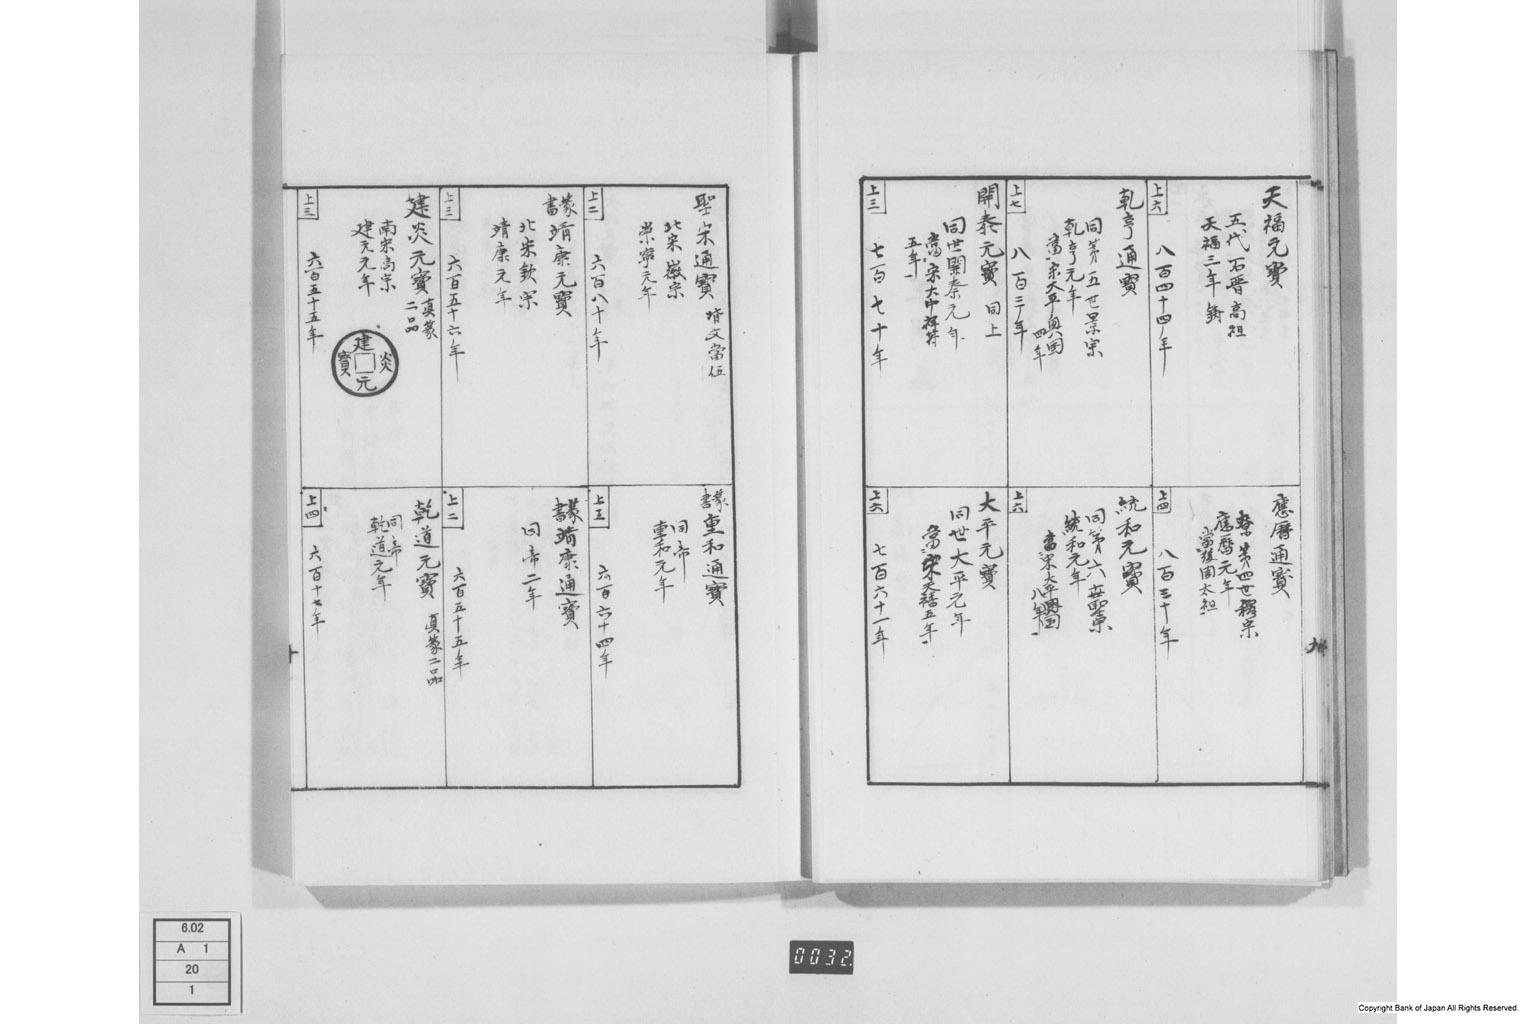 天福元寳
五代石晋高祖
天福三年鋳
上六
八百四十四年
乾亨通寳
同第五世景宗
乾亨元年
當宋太平興国
四年
上七
八百三年
開泰元寳 同上
同世開泰元年
當宋大中祥符
五年
上三
七百七十年
應暦通寳
遼第四世穆宗
應暦元年
當後周太祖
上四
八百三十年
統和元寳
同第六世聖宗
統和元年
當宋太平興国
八年
上六
大平元寳
同世大平元年
當宋天禧五年
上六
七百六十一年
聖宋通寳 背文當伍
北宋徽宗
崇寧元年
上二
六百八十年
篆書 靖康元寳
北宋欽宗
靖康元年
上三
六百五十六年
建炎元寳 真篆二品
南宋高宗
建元元年
建炎元寳
上三
六百五十五年
篆書 重和通寳
同帝
重和元年
上五
六百六十四年
篆書 靖康通寳
同帝二年
上二
六百五十五年
乾道元寳 真篆二品
同帝
乾道元年
上四
六百十七年
6.02
A 1
20
1
0032
Copyright Bank of Japan All Rights Reserved.